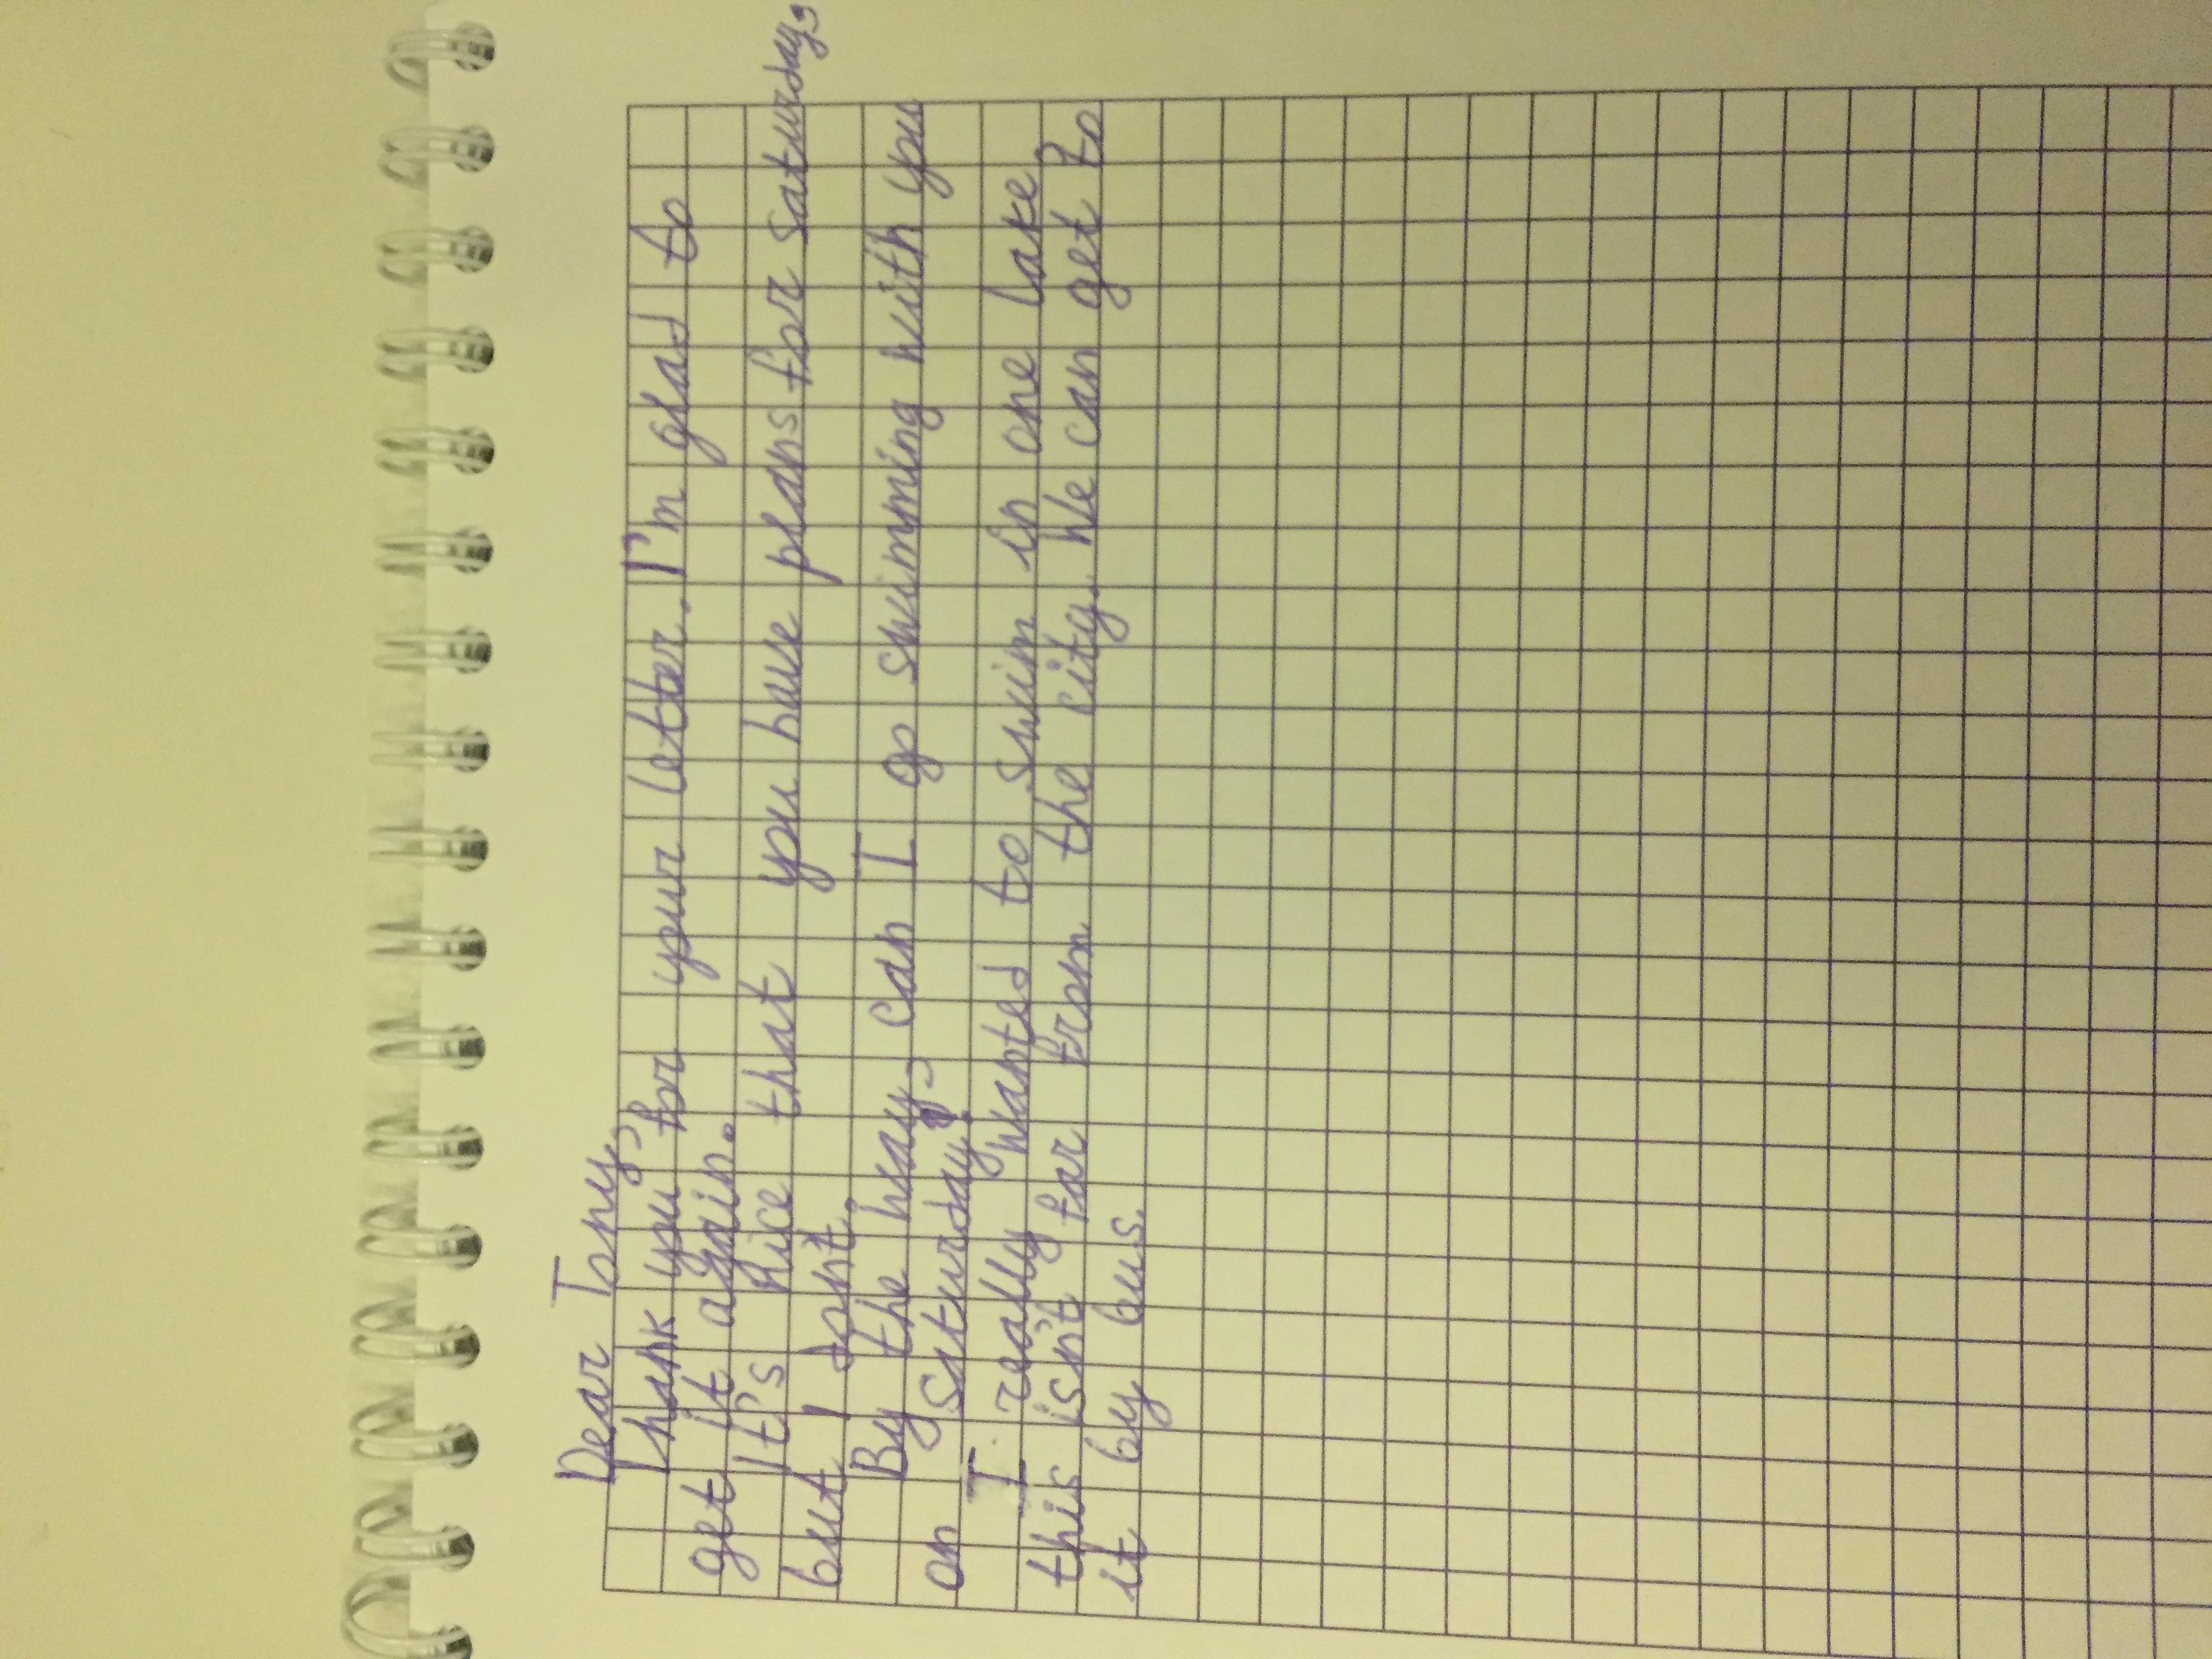 Dear Tony,
Thank you for your letter. I'm glad to
get it again.
It's nice that you have plans for saturday,
but I dont.
By the way, can I go swimming with you
on saturday?
I really wanted to swim in one lake,
this isn't far from the city. We can get to
it by bus.